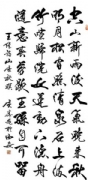 空山新雨後天氣晚來秋
明月松間照清泉石上流
竹喧歸浣女蓮動下漁舟
隨意春芳歇王孫自可留
王維詩山居秋暝